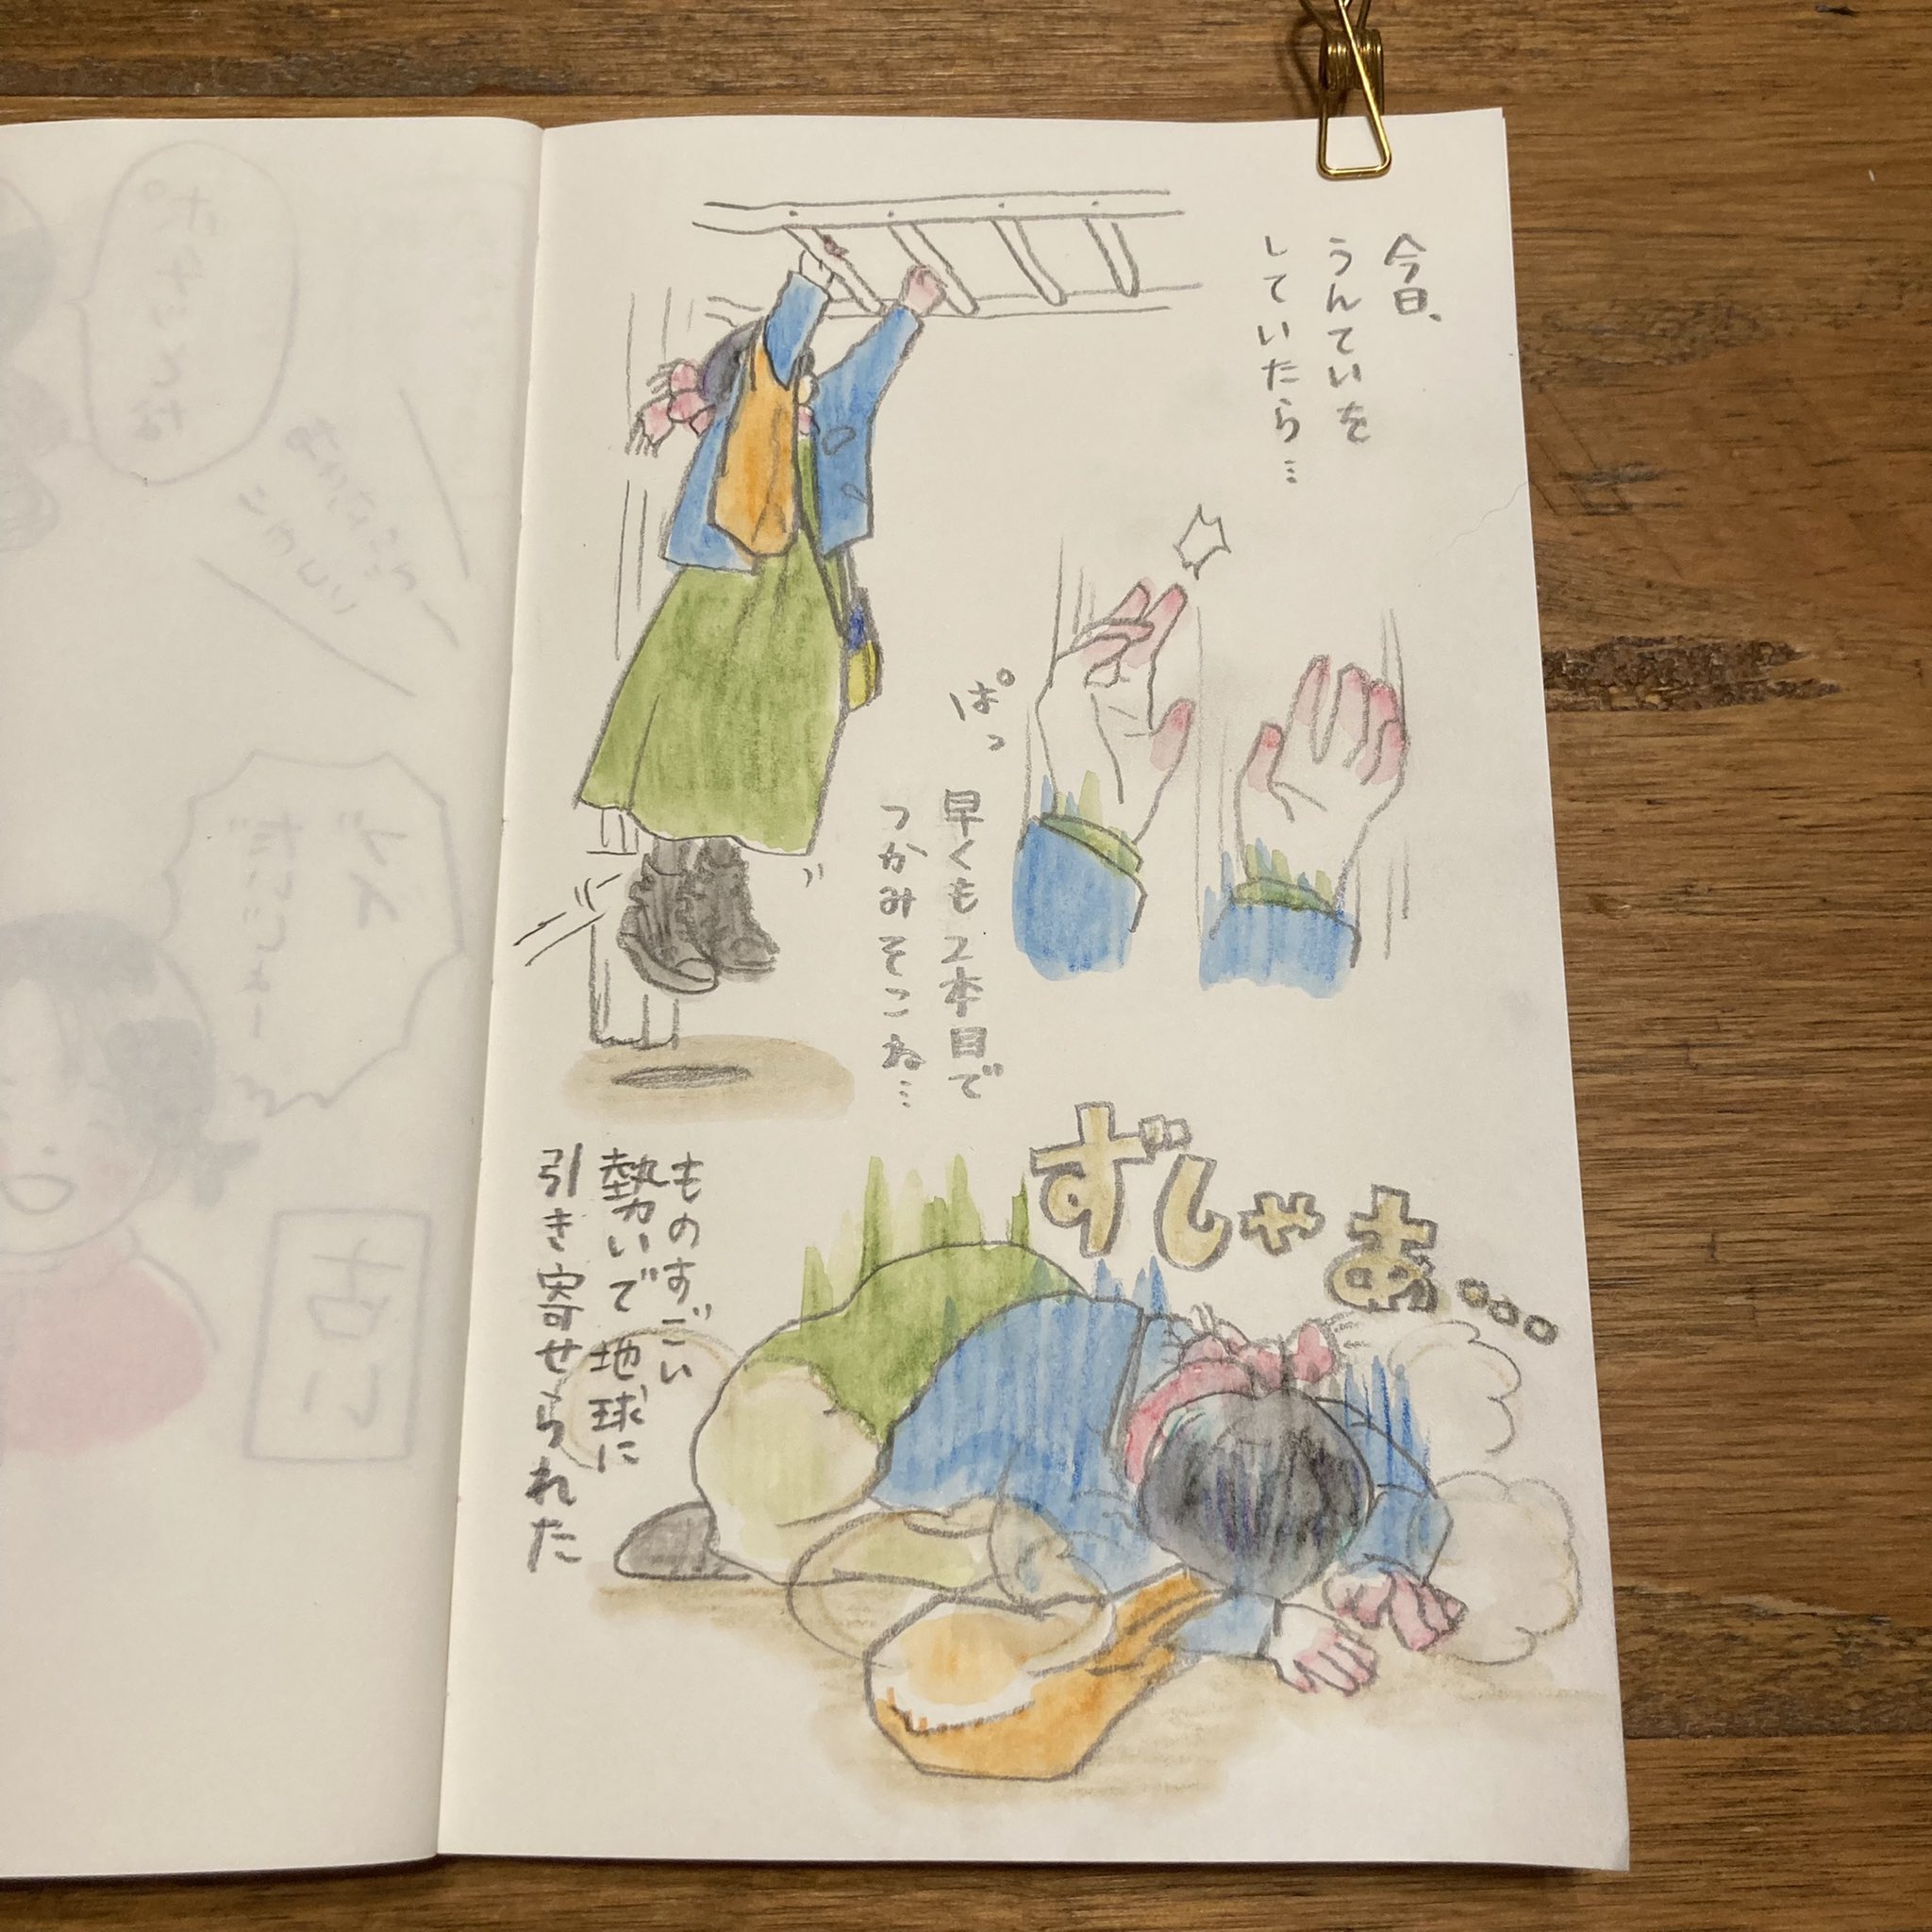 今日、
うんていを
していたら…
ぱっ
早くも2本目で
つかみそこね…
ずしゃあ…
ものすごい
勢いで地球に
引き寄せられた